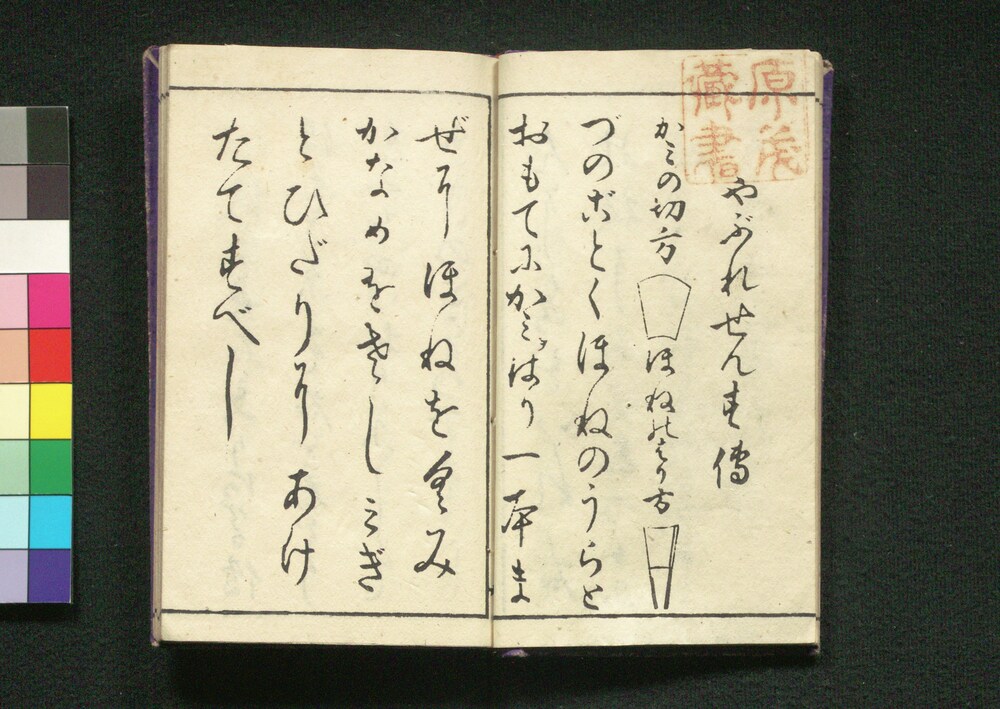 原茂
蔵書
やぶれせんす傳
かミの切方 ほねのはり方
づのごとくほねのうらと
おもてにかミをはり一本ま
ぜにほねをくみ
かなめをさしミぎ
とひだりにあけ
たてすべし